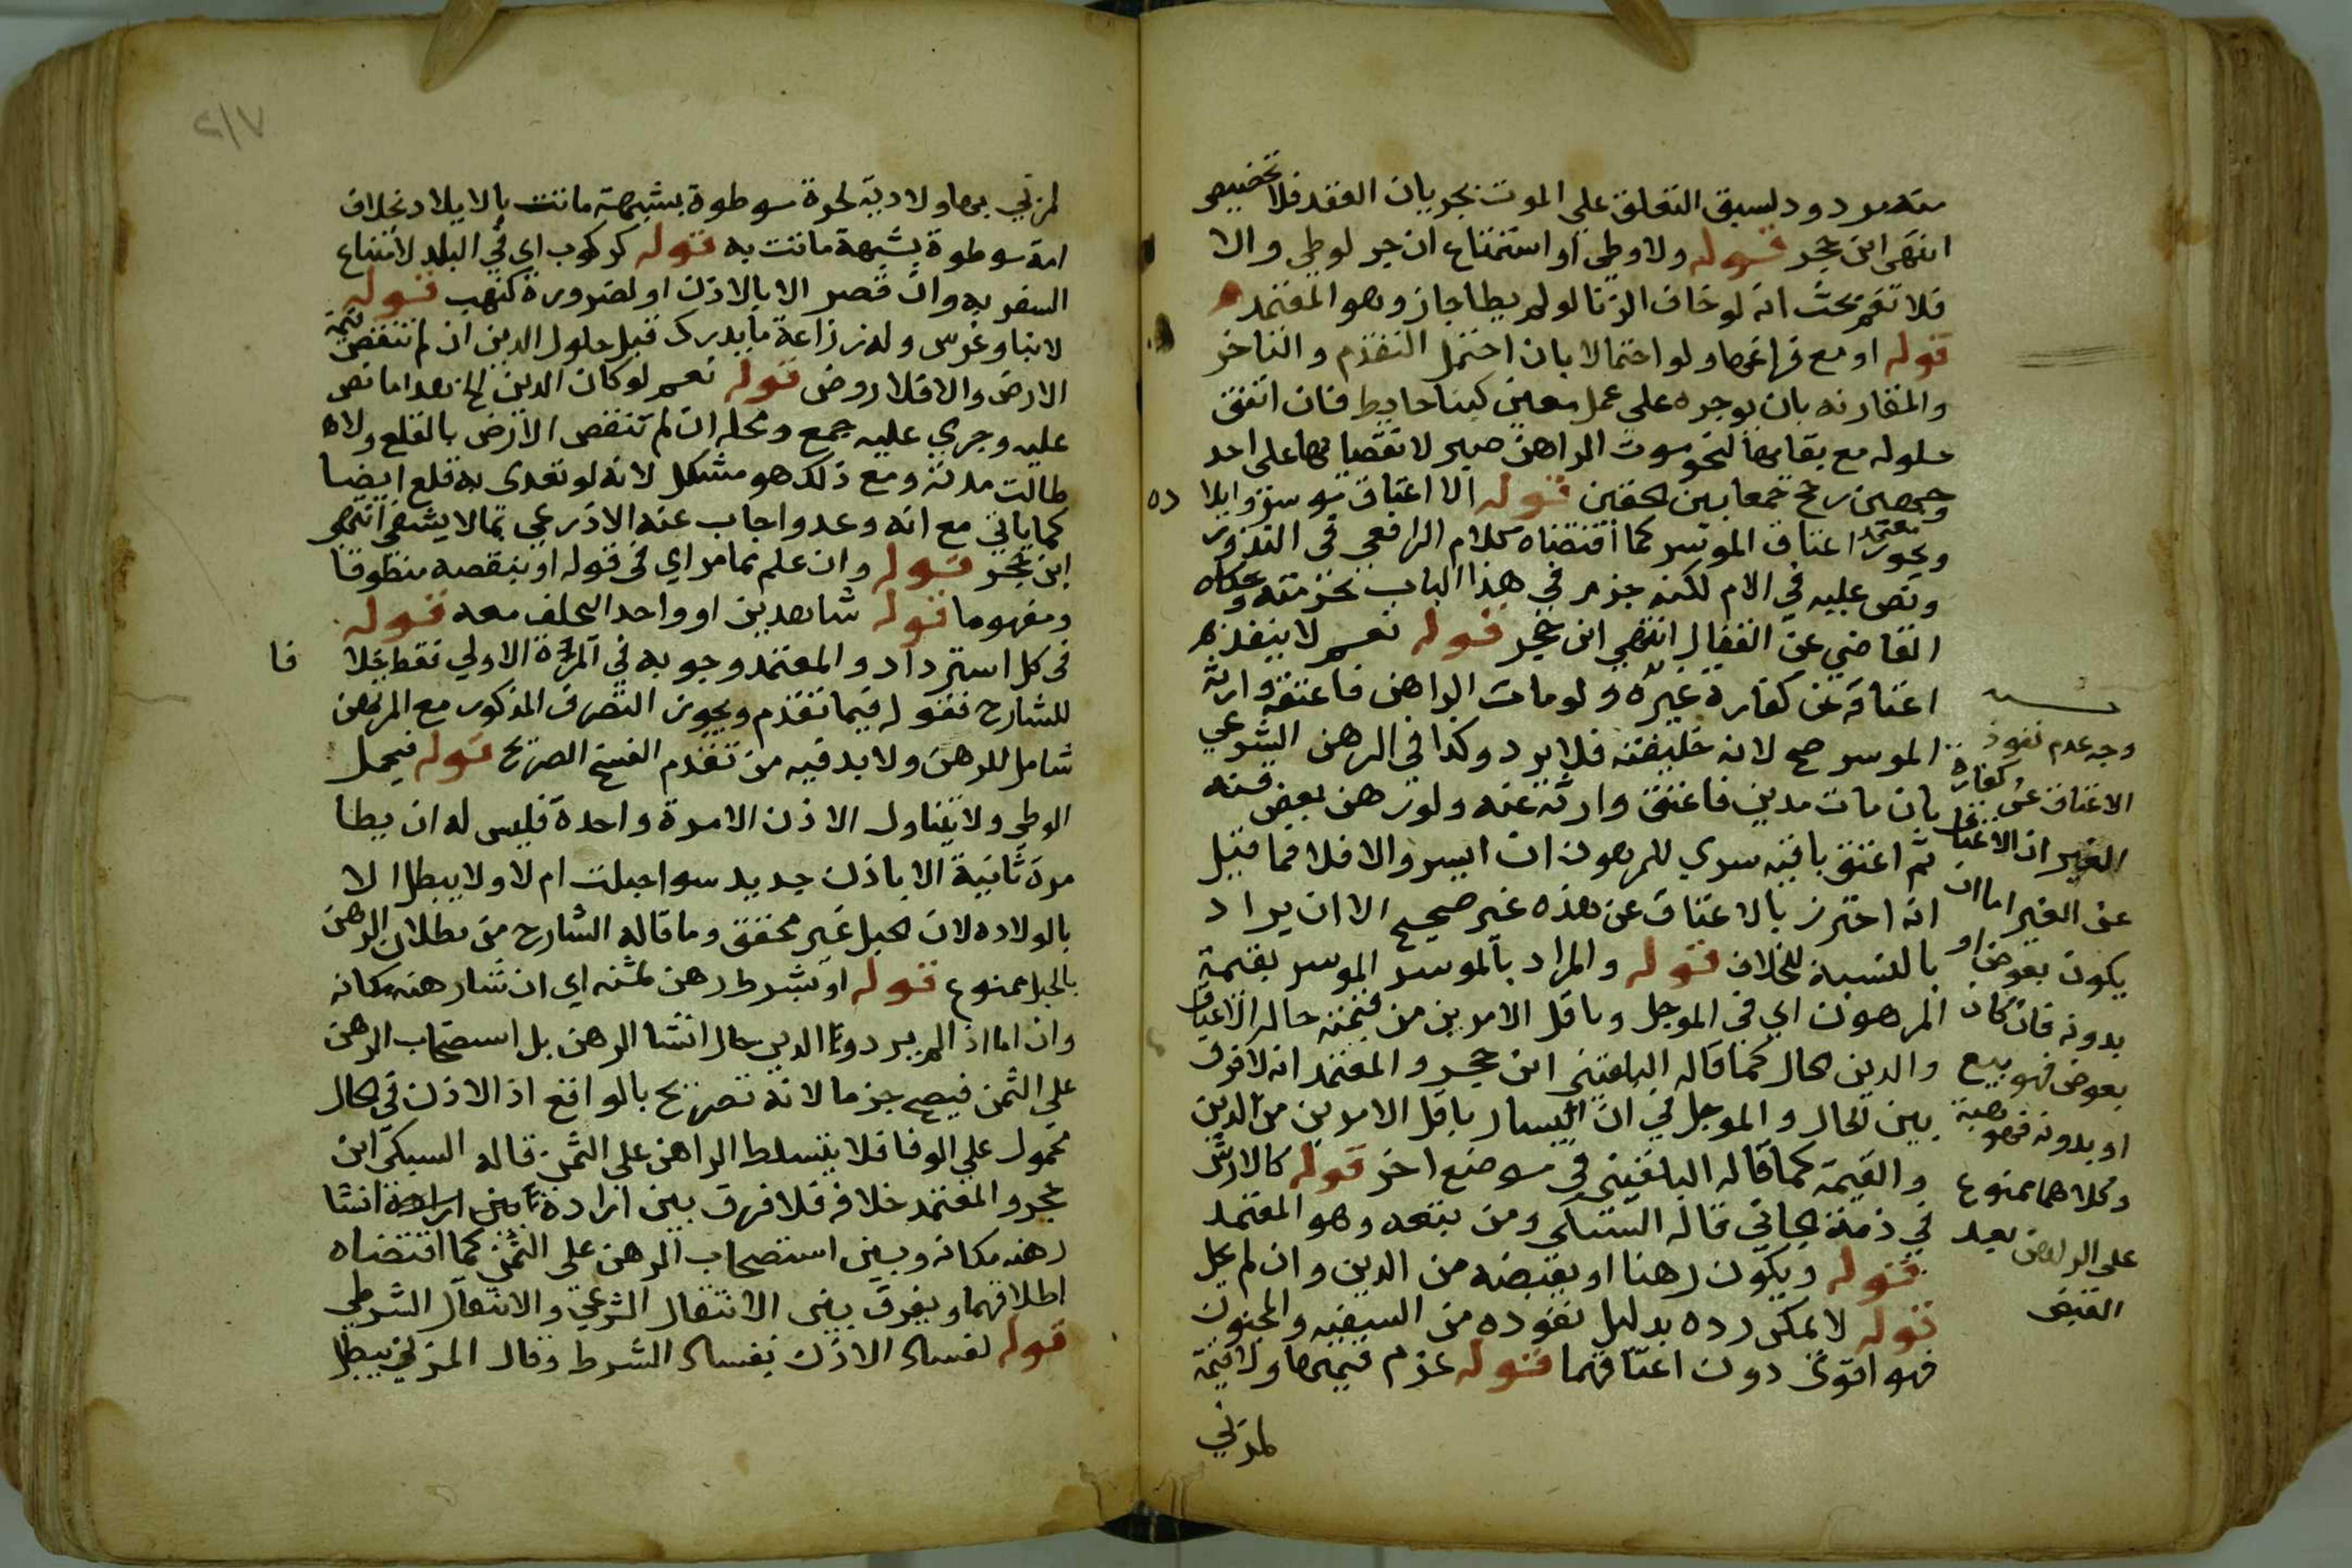 منه مردود لسبق التعلق على الموت بجريان العقد فلا تخصيص
انتهى ابن حجر قوله ولا وطي او استمتاع ان جر لوطي والا
فلا نعم بحث انه لو خاف الزنا لو لم يطا جاز وهو المعتمد
قوله او مع فراغها ولو احتمالا بان احتمل التقدم والتاخر
والمقارنه بان يوجره على عمل معين كبنا حايط فان اتفق
حلوله مع بقايها لنحو موت الراهن صبر لانقضايها على احد
وجهين رجح جمعا بين الحقين قوله الا اعتاق موسر وايلاده
ويجوز معتمد اعتاق الموسر كما اقتضاه كلام الرافعي في النذور
ونص عليه في الام لكنه جزم في هذا الباب بحرمته وحكاه
القاضي عن القفال انتهى ابن حجر قوله نعم لا ينفذ
اعتاقه عن كفارة غيره ولو مات الراهن فاعتقه وارثه
الموسر صح لانه خليفته فلا يرد وكذا في الرهن الشرعي
بان مات مدين فاعتق وارثه عنه ولو رهن بعض قنه
ثم اعتق باقيه سرى للمرهون ان ايسر والا فلا فما قيل
انه احترز بالاعتاق عن هذه غير صحيح الا ان يراد
بالنسبة للخلاف قوله والمراد بالموسر الموسر بقيمة
المرهون اي في الموجل وباقل الامرين من قيمته حالة الاعتاق
والدين الحال كما قاله البلقيني ابن حجر والمعتمد انه لا فرق
بين الحال والموجل في ان اليسار باقل الامرين من الدين
والقيمة كما قاله البلقيني في موضع اخر قوله كالارش
في ذمة الجاني قاله السبكي ومن تبعه وهو المعتمد
قوله ويكون رهنا او يقبضه من الدين وان لم يحل
قوله لا يمكن رده بدليل نفوده من السفيه والمجنون
فهو اقوى دون اعتاقهما قوله غرم قيمتها ولا قيمة
لمزني
وجه عدم نفوذ
الاعتاق عن كفارة
الغير ان الاعتاق
عن الغير اما ان
يكون بعوض او
بدونه فان كان
بعوض فهو بيع
او بدونه فهو هبة
وكلاهما ممنوع
على الراهن بعد
القبض
٢١٧
لمزني بها ولا دية لحرة موطوة بشبهة ماتت بالايلاد بخلاف
امة موطوة بشبهة ماتت به قوله كركوب اي في البلد لامتناع
السفر به وان قصر الا بالاذن او لضرورة كنهب قوله
لا بنا وغرس وله زراعة ما يدرك قبل حلول الدين ان لم تنقص قيمة
الارض والا فلا روض قوله نعم لو كان الدين الخ بعد اما نص
عليه وجرى عليه جمع ومحله ان لم تنقص الارض بالقلع ولا
طالت مدته ومع ذلك هو مشكل لانه لو تعدى به قلع ايضا
كما ياتي مع انه وعد واجاب عنه الاذرعي بما لا يشفي انتهى
ابن حجر قوله وان علم مما مر اي في قوله او ينقصه منطوقا
ومفهوما قوله شاهدين او واحد اليحلف معه قوله
في كل استرداد والمعتمد وجوبه في المرة الاولي فقط خلافا
للشارح فقوله فيما تقدم ويجوز التصرف المذكور مع المرتهن
شامل للرهن ولا بد فيه من تقدم الفسخ الصريح قوله فيحل
الوطي ولا يتناول الاذن الا مرة واحدة فليس له ان يطا
مرة ثانية الا باذن جديد سوا حبلت ام لا ولا يبطل الا
بالولاده لان الحبل غير محقق وما قاله الشارح من بطلان الرهن
بالحبل ممنوع قوله او بشرط رهن ثمنه اي ان شا رهنه مكانه
وان اما اذا لم يريدونا الدين حال انشا الرهن بل استصحاب الرهن
علي الثمن فيصح جزما لانه تصريح بالواقع اذ الاذن في الحال
محمول علي الوفا فلا يتسلط الراهن على الثمن قاله السبكي ابن
حجر والمعتمد خلافه فلا فرق بين ارادة انشا
رهنه مكانه وبين استصحاب الرهن على الثمن كما اقتضاه
اطلاقهما ويفرق بين الانتقال الشرعي والانتقال الشرطي
قوله لفساد الاذن بفساد الشرط وقال المزني يبطل